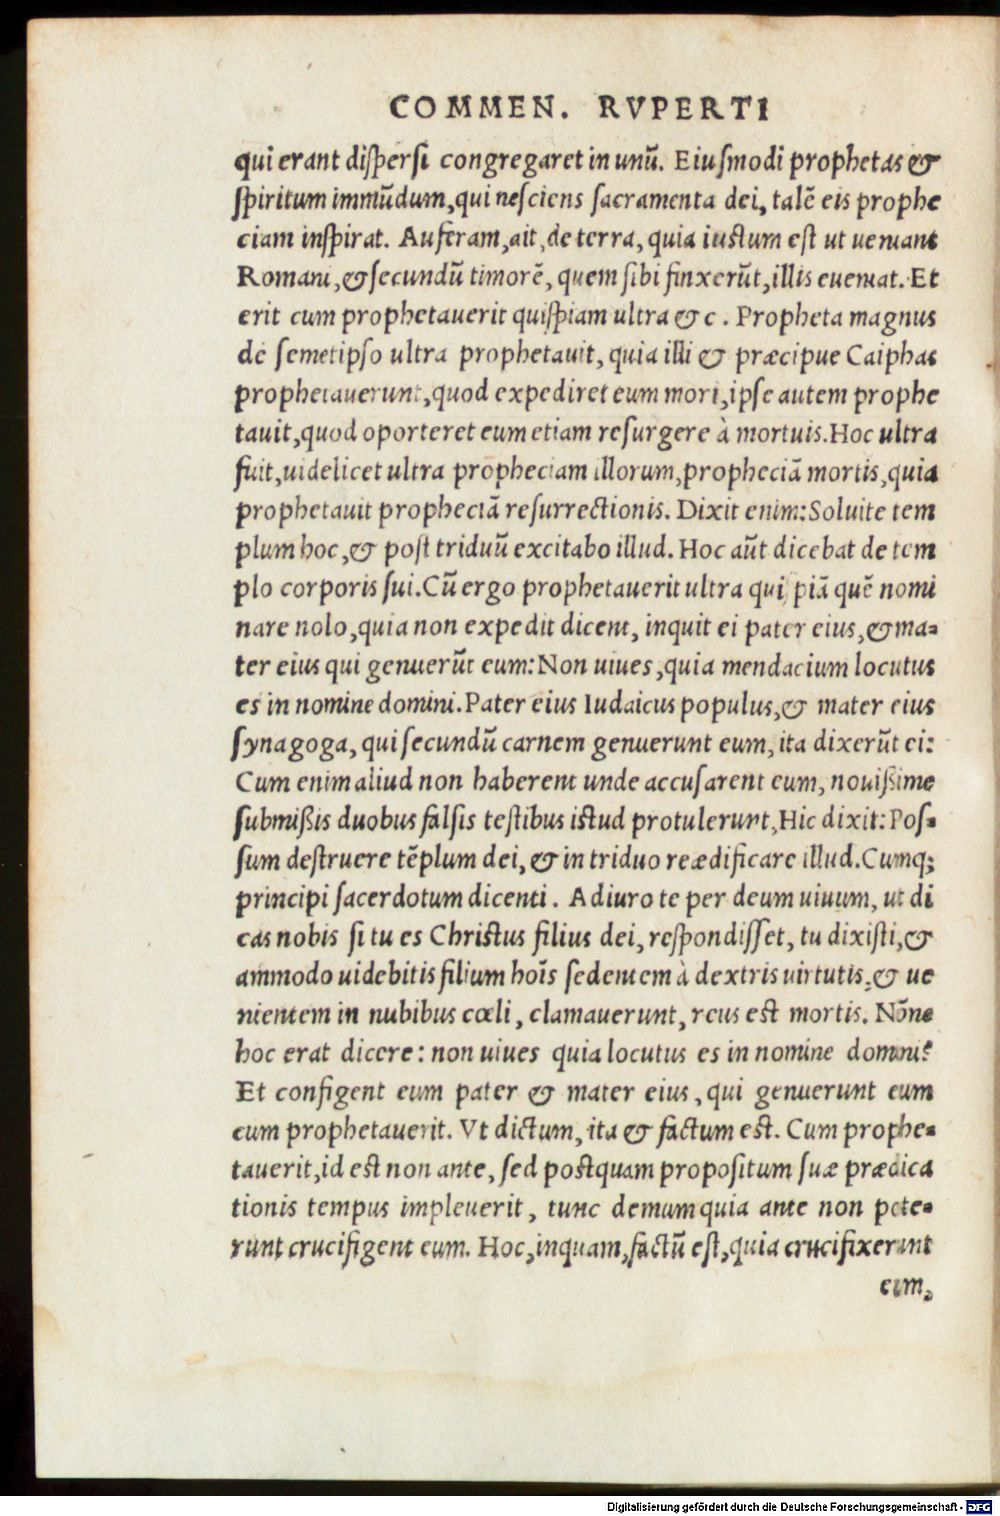 COMMEN. RVPERTI
qui erant dispersi congregaret in unū. Eiusmodi prophetas &
spiritum immūdum, qui nesciens sacramenta dei, talē eis prophe
ciam inspirat. Auferam, ait, de terra, quia iustum est ut ueniant
Romani, & secundū timorē, quem sibi finxerūt, illis eueniat. Et
erit cum prophetauerit quispiam ultra & c. Propheta magnus
de semetipso ultra prophetauit, quia illi & præcipue Caiphas
prophetauerunt, quod expediret eum mori, ipse autem prophe
tauit, quod oporteret eum etiam resurgere à mortuis. Hoc ultra
fuit, uidelicet ultra propheciam illorum, propheciā mortis, quia
prophetauit propheciā resurrectionis. Dixit enim: Soluite tem
plum hoc, & post triduū excitabo illud. Hoc aūt dicebat de tem
plo corporis sui. Cū ergo prophetauerit ultra qui piā quē nomi
nare nolo, quia non expedit dicent, inquit ei pater eius, & ma-
ter eius qui genuerūt eum: Non uiues, quia mendacium locutus
es in nomine domini. Pater eius Iudaicus populus, & mater eius
synagoga, qui secundū carnem genuerunt eum, ita dixerūt ei:
Cum enim aliud non haberent unde accusarent eum, nouißime
submißis duobus falsis testibus istud protulerunt, Hic dixit: Pos-
sum destruere tēplum dei, & in triduo reædificare illud. Cumq;
principi sacerdotum dicenti. Adiuro te per deum uiuum, ut di
cas nobis si tu es Christus filius dei, respondisset, tu dixisti, &
ammodo uidebitis filium hoīs sedentem à dextris uirtutis, & ue
nientem in nubibus cœli, clamauerunt, reus est mortis. Nōne
hoc erat dicere: non uiues quia locutus es in nomine domini?
Et configent eum pater & mater eius, qui genuerunt eum
cum prophetauerit. Vt dictum, ita & factum est. Cum prophe-
tauerit, id est non ante, sed postquam propositum suæ prædica
tionis tempus impleuerit, tunc demum quia ante non pote-
runt crucifigent eum. Hoc, inquam, factū est, quia crucifixerunt
eum,
Digitalisierung gefördert durch die Deutsche Forschungsgemeinschaft - DFG